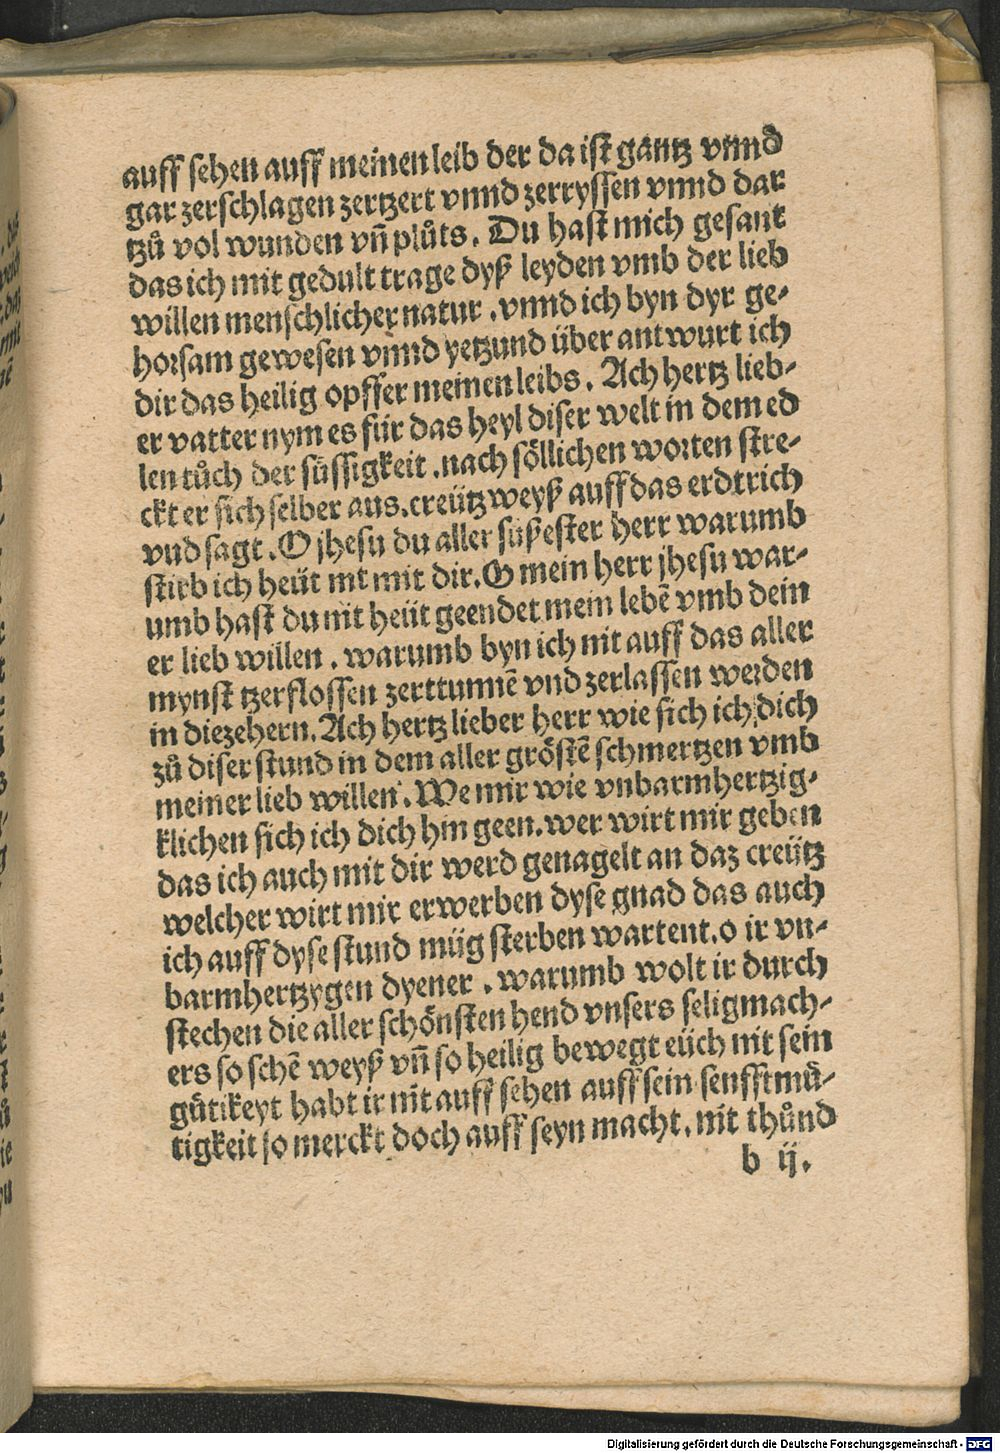 auff sehen auff meinen leib der da ist gantz vnnd
gar zerschlagen zertzert vnnd zerryssen vnnd dar
tzů vol wunden vn̄ plůts. Du hast mich gesant
das ich mit gedult trage dyß leyden vmb der lieb
willen menschlicher natur. vnnd ich byn dyr ge-
horsam gewesen vnnd yetzund über antwurt ich
dir das heilig opffer meinen leibs. Ach hertz lieb-
er vatter nym es für das heyl diser welt in dem ed
len tůch der süssigkeit. nach söllichen worten stre-
ckt er sich selber aus. creützweyß auff das erdtrich
vnd sagt. O jhesu du aller süßester herr warumb
stirb ich heüt nit mit dir. O mein herr jhesu war-
umb hast du nit heüt geendet mein lebē vmb dein
er lieb willen. warumb byn ich nit auff das aller
mynst tzerflossen zerttunnē vnd zerlassen werden
in die zehern. Ach hertz lieber herr wie sich ich dich
zů diser stund in dem aller gröstē schmertzen vmb
meiner lieb willen. We mir wie vnbarmhertzig-
klichen sich ich dich hin geen. wer wirt mir geben
das ich auch mit dir werd genagelt an daz creütz
welcher wirt mir erwerben dyse gnad das auch
ich auff dyse stund müg sterben wartent. o ir vn-
barmhertzygen dyener. warumb wolt ir durch
stechen die aller schönsten hend vnsers seligmach-
ers so schē weyß vn̄ so heilig bewegt eüch nit sein
gůtikeyt habt ir nit auff sehen auff sein senfftmů-
tigkeit so merckt doch auff seyn macht. nit thůnd
b ij.
Digitalisierung gefördert durch die Deutsche Forschungsgemeinschaft - DFG